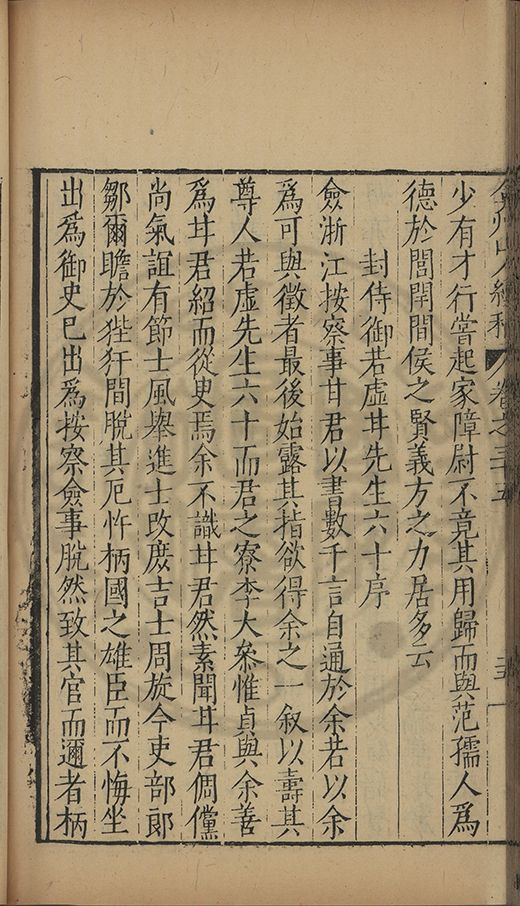 弇州山人續稿 卷之三十五
少有才行嘗起家障尉不竟其用歸而與范孺人爲
德於閭閈間侯之賢義方之力居多云
封侍御若虛井先生六十序
僉浙江按察事甘君以書數千言自通於余若以余
爲可與徵者最後始露其指欲得余之一叙以壽其
尊人若虛先生六十而君之寮李大叅惟貞與余善
爲井君紹而從臾焉余不識井君然素聞井君倜儻
尚氣誼有節士風舉進士改庶吉士周旋今吏部郎
鄒爾瞻於狴犴間脫其厄忤柄國之雄臣而不悔坐
出爲御史巳出爲按察僉事脫然致其官而邇者柄